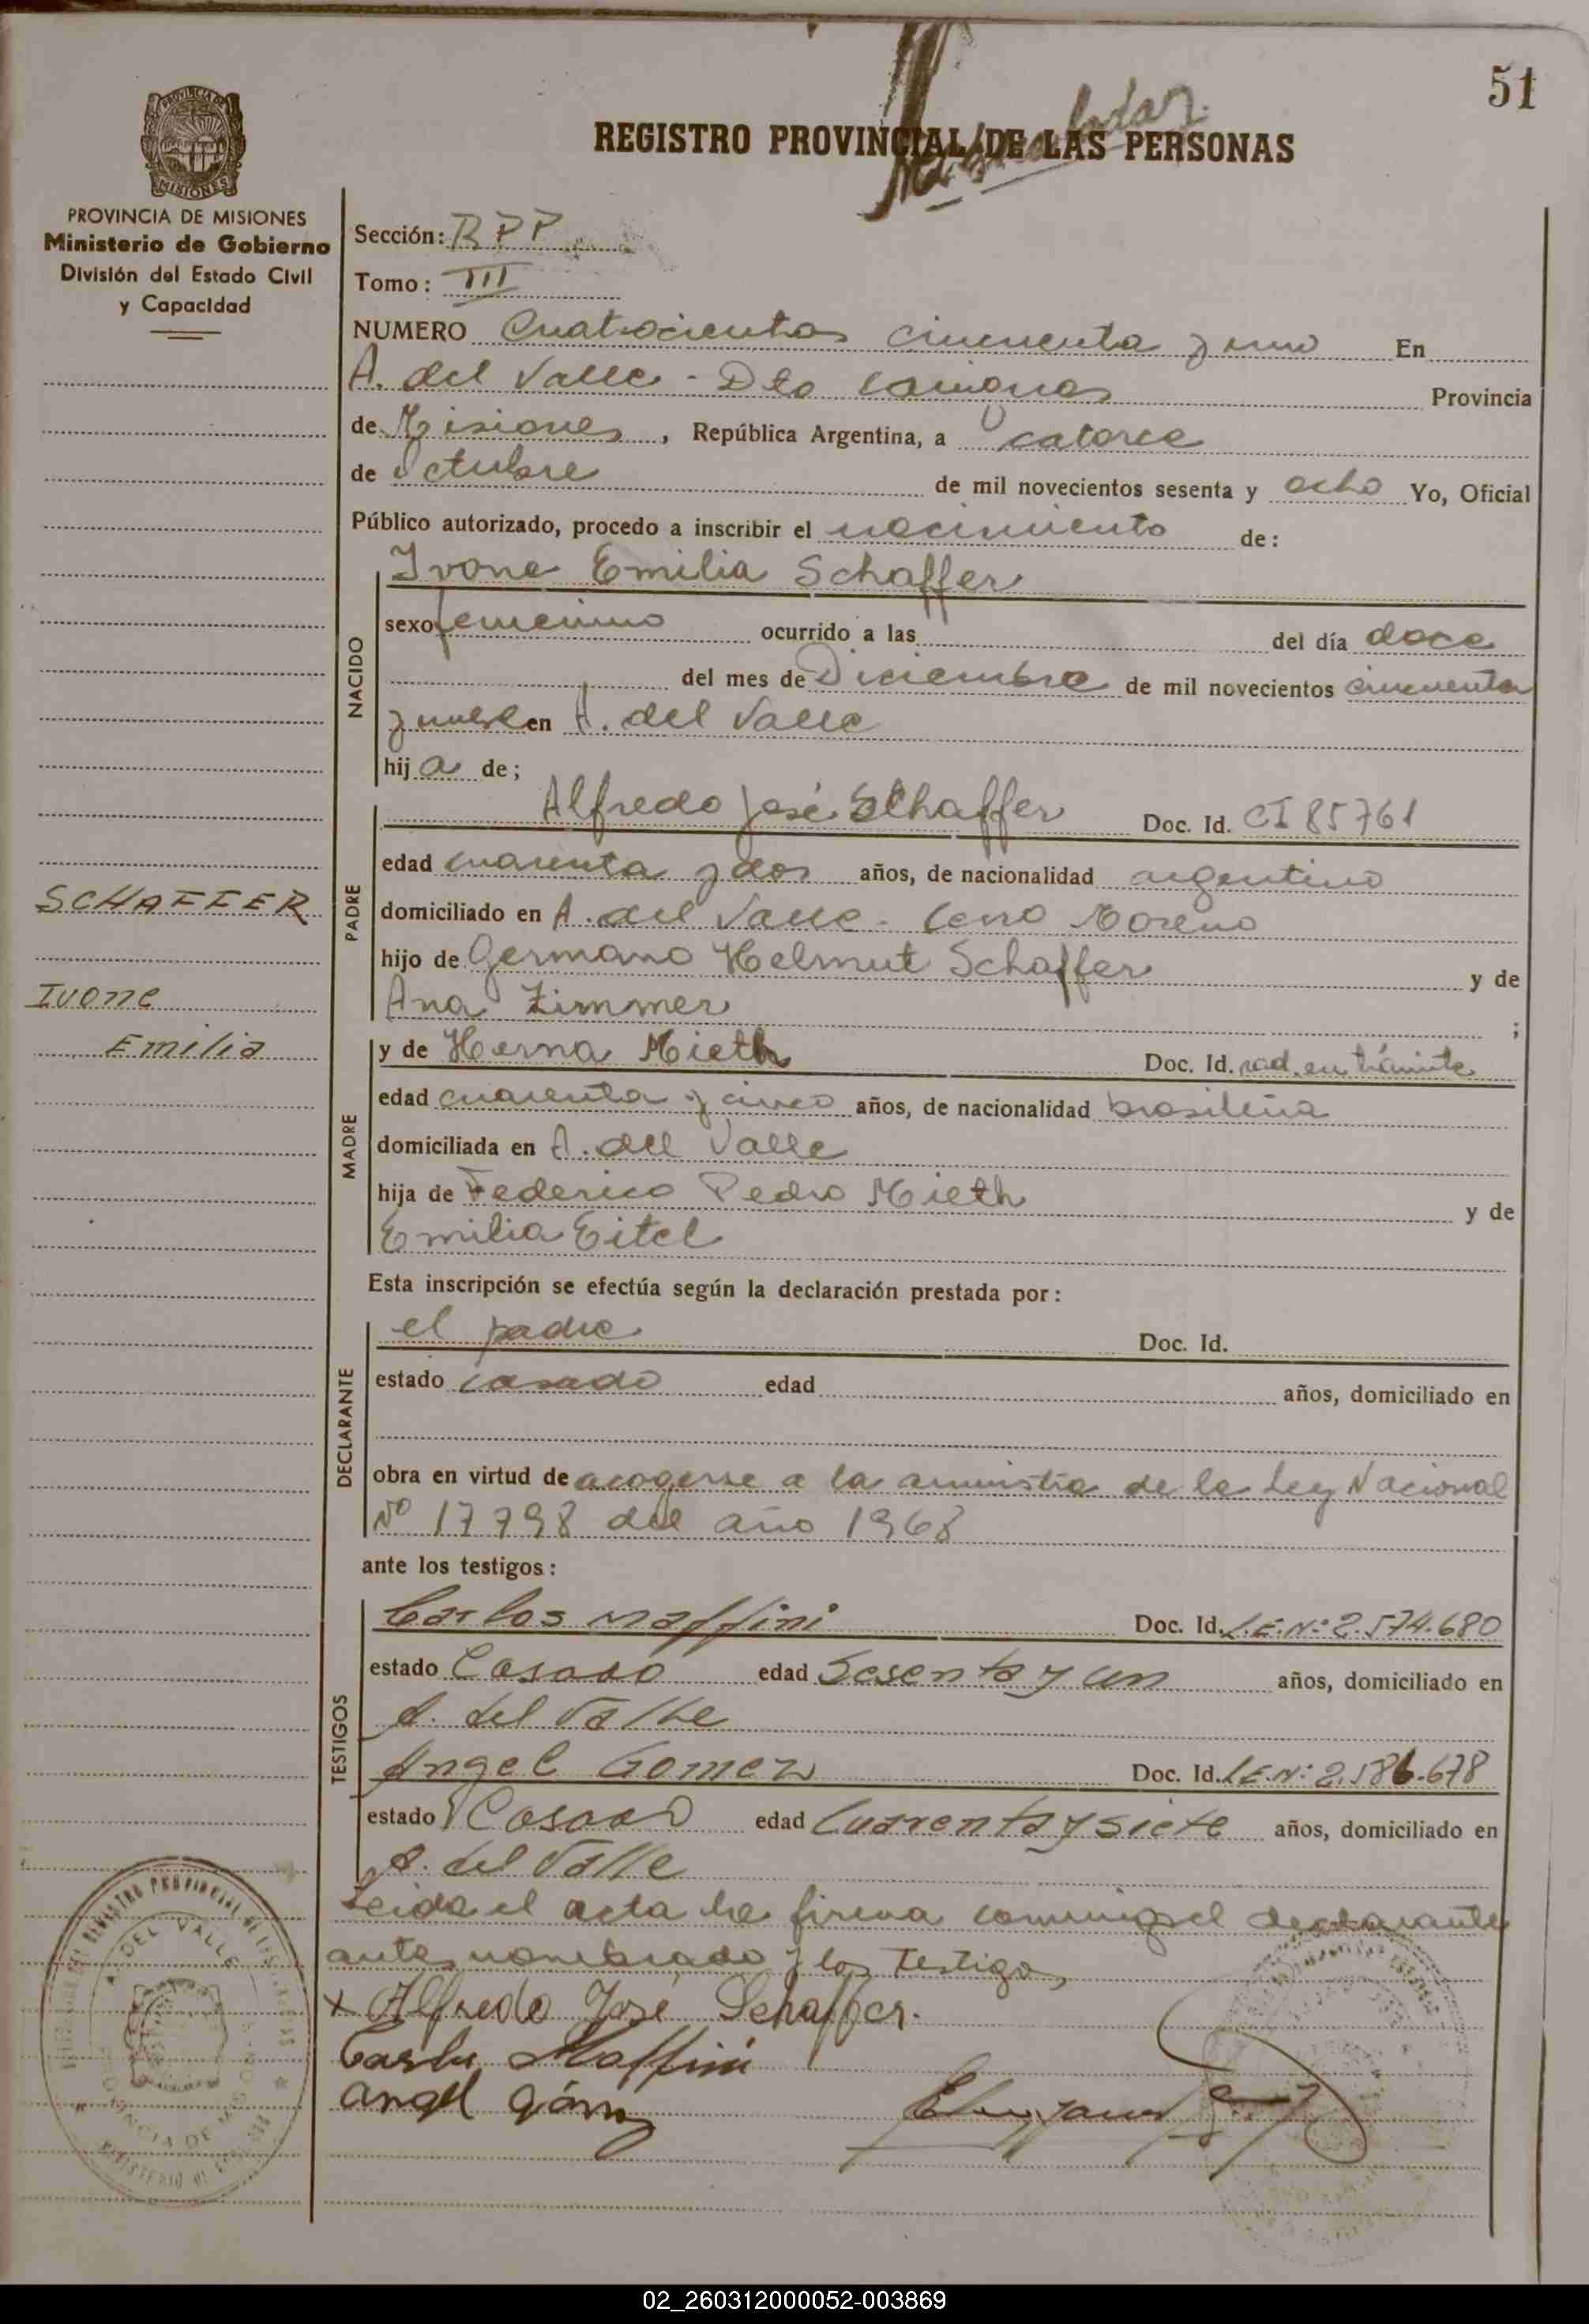 51
REGISTRO PROVINCIAL DE LAS PERSONAS
PROVINCIA DE MISIONES
Ministerio de Gobierno
División del Estado Civil
y Capacidad
Sección: RPP
Tomo: III
NUMERO Cuatrocientos cincuenta y uno En
A. del Valle - Dto Cainguas Provincia
de Misiones, República Argentina, a catorce
de Octubre de mil novecientos sesenta y ocho Yo, Oficial
Público autorizado, procedo a inscribir el nacimiento de:
Ivone Emilia Schaffer
NACIDO
sexo femenino ocurrido a las del día doce
del mes de Diciembre de mil novecientos cincuenta
y nueve en A. del Valle
hij a de;
Alfredo José Schaffer Doc. Id. CI 85761
PADRE
edad cuarenta y dos años, de nacionalidad argentino
SCHAFFER
domiciliado en A. del Valle - Cerro Moreno
hijo de Germano Helmut Schaffer y de
Ivone
Ana Zimmer ;
Emilia
y de Herna Mieth Doc. Id. rad. en trámite
MADRE
edad cuarenta y cinco años, de nacionalidad brasileña
domiciliada en A. del Valle
hija de Federico Pedro Mieth y de
Emilia Eitel
Esta inscripción se efectúa según la declaración prestada por:
el padre Doc. Id.
DECLARANTE
estado casado edad años, domiciliado en
obra en virtud de acogerse a la amnistia de la Ley Nacional
Nº 17798 del año 1968
ante los testigos:
Carlos Maffini Doc. Id. L.E.Nº 2.574.680
TESTIGOS
estado Casado edad Sesenta y un años, domiciliado en
A. del Valle
Angel Gomez Doc. Id. L.E.Nº 2.586.678
estado Casado edad Cuarenta y siete años, domiciliado en
A. del Valle
Leida el acta la firma conmigo el declarante
antes nombrado y los testigos
x Alfredo José Schaffer.
Carlos Maffini
Angel Gómez
A. DEL VALLE
PROVINCIA DE MISIONES
MINISTERIO DE
02_260312000052-003869